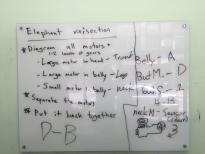 * Elephant vivisection
* Diagram all motors +
1/2 looks @ gears
- Large motor in head - Trunk
- Large motor in belly - Legs
- Small motor in belly -
* Separate the motors
* Put it back together
D-B
Belly - A
Back M. - D
2
4 B
neck M -
3